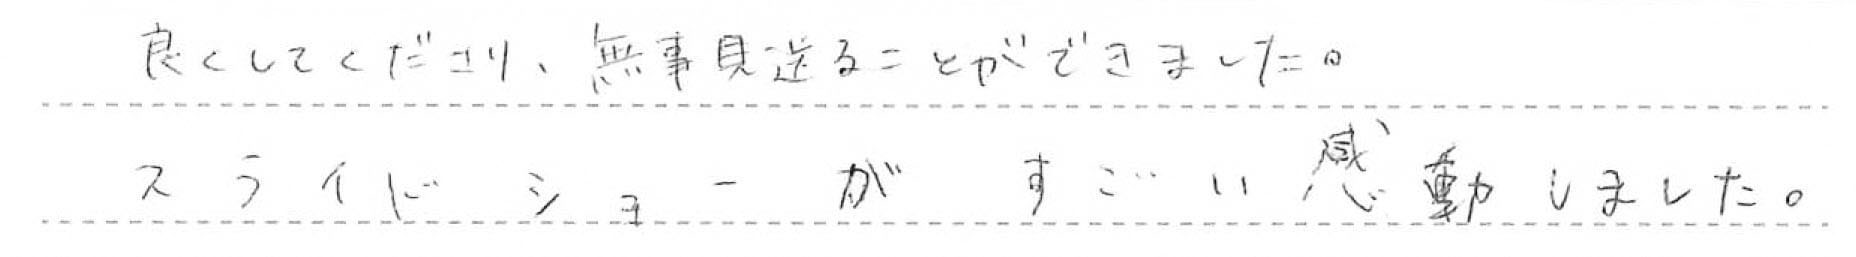 良くしてくださり、無事見送ることができました。
スライドショーがすごい感動しました。